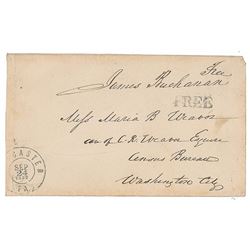 Free
James Buchanan
FREE
Miss Maria B Weaver
care of C. R. Weaver Esquire
Census Bureau
Washington City
CASTER
SEP
24
PA